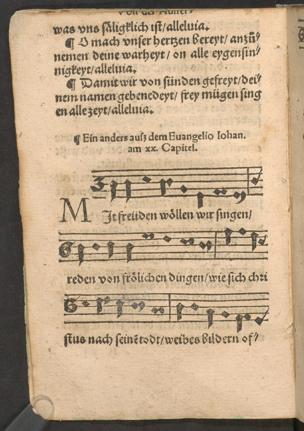 Von der Aufer-
was vns säligklich ist/alleluia.
¶ O mach vnser hertzen bereyt/ anzů-
nemen deine warheyt/ on alle eygensin-
nigkeyt/alleluia.
¶ Damit wir von sünden gefreyt/dei-
nem namen gebenedeyt/ frey mügen sing
en alle zeyt/alleluia.
¶ Ein anders auſz dem Euangelio Iohan.
am xx. Capitel.
MIt freüden wöllen wir singen/
reden von frölichen dingen/wie sich chri
stus nach seinē todt/weibes bildern of-